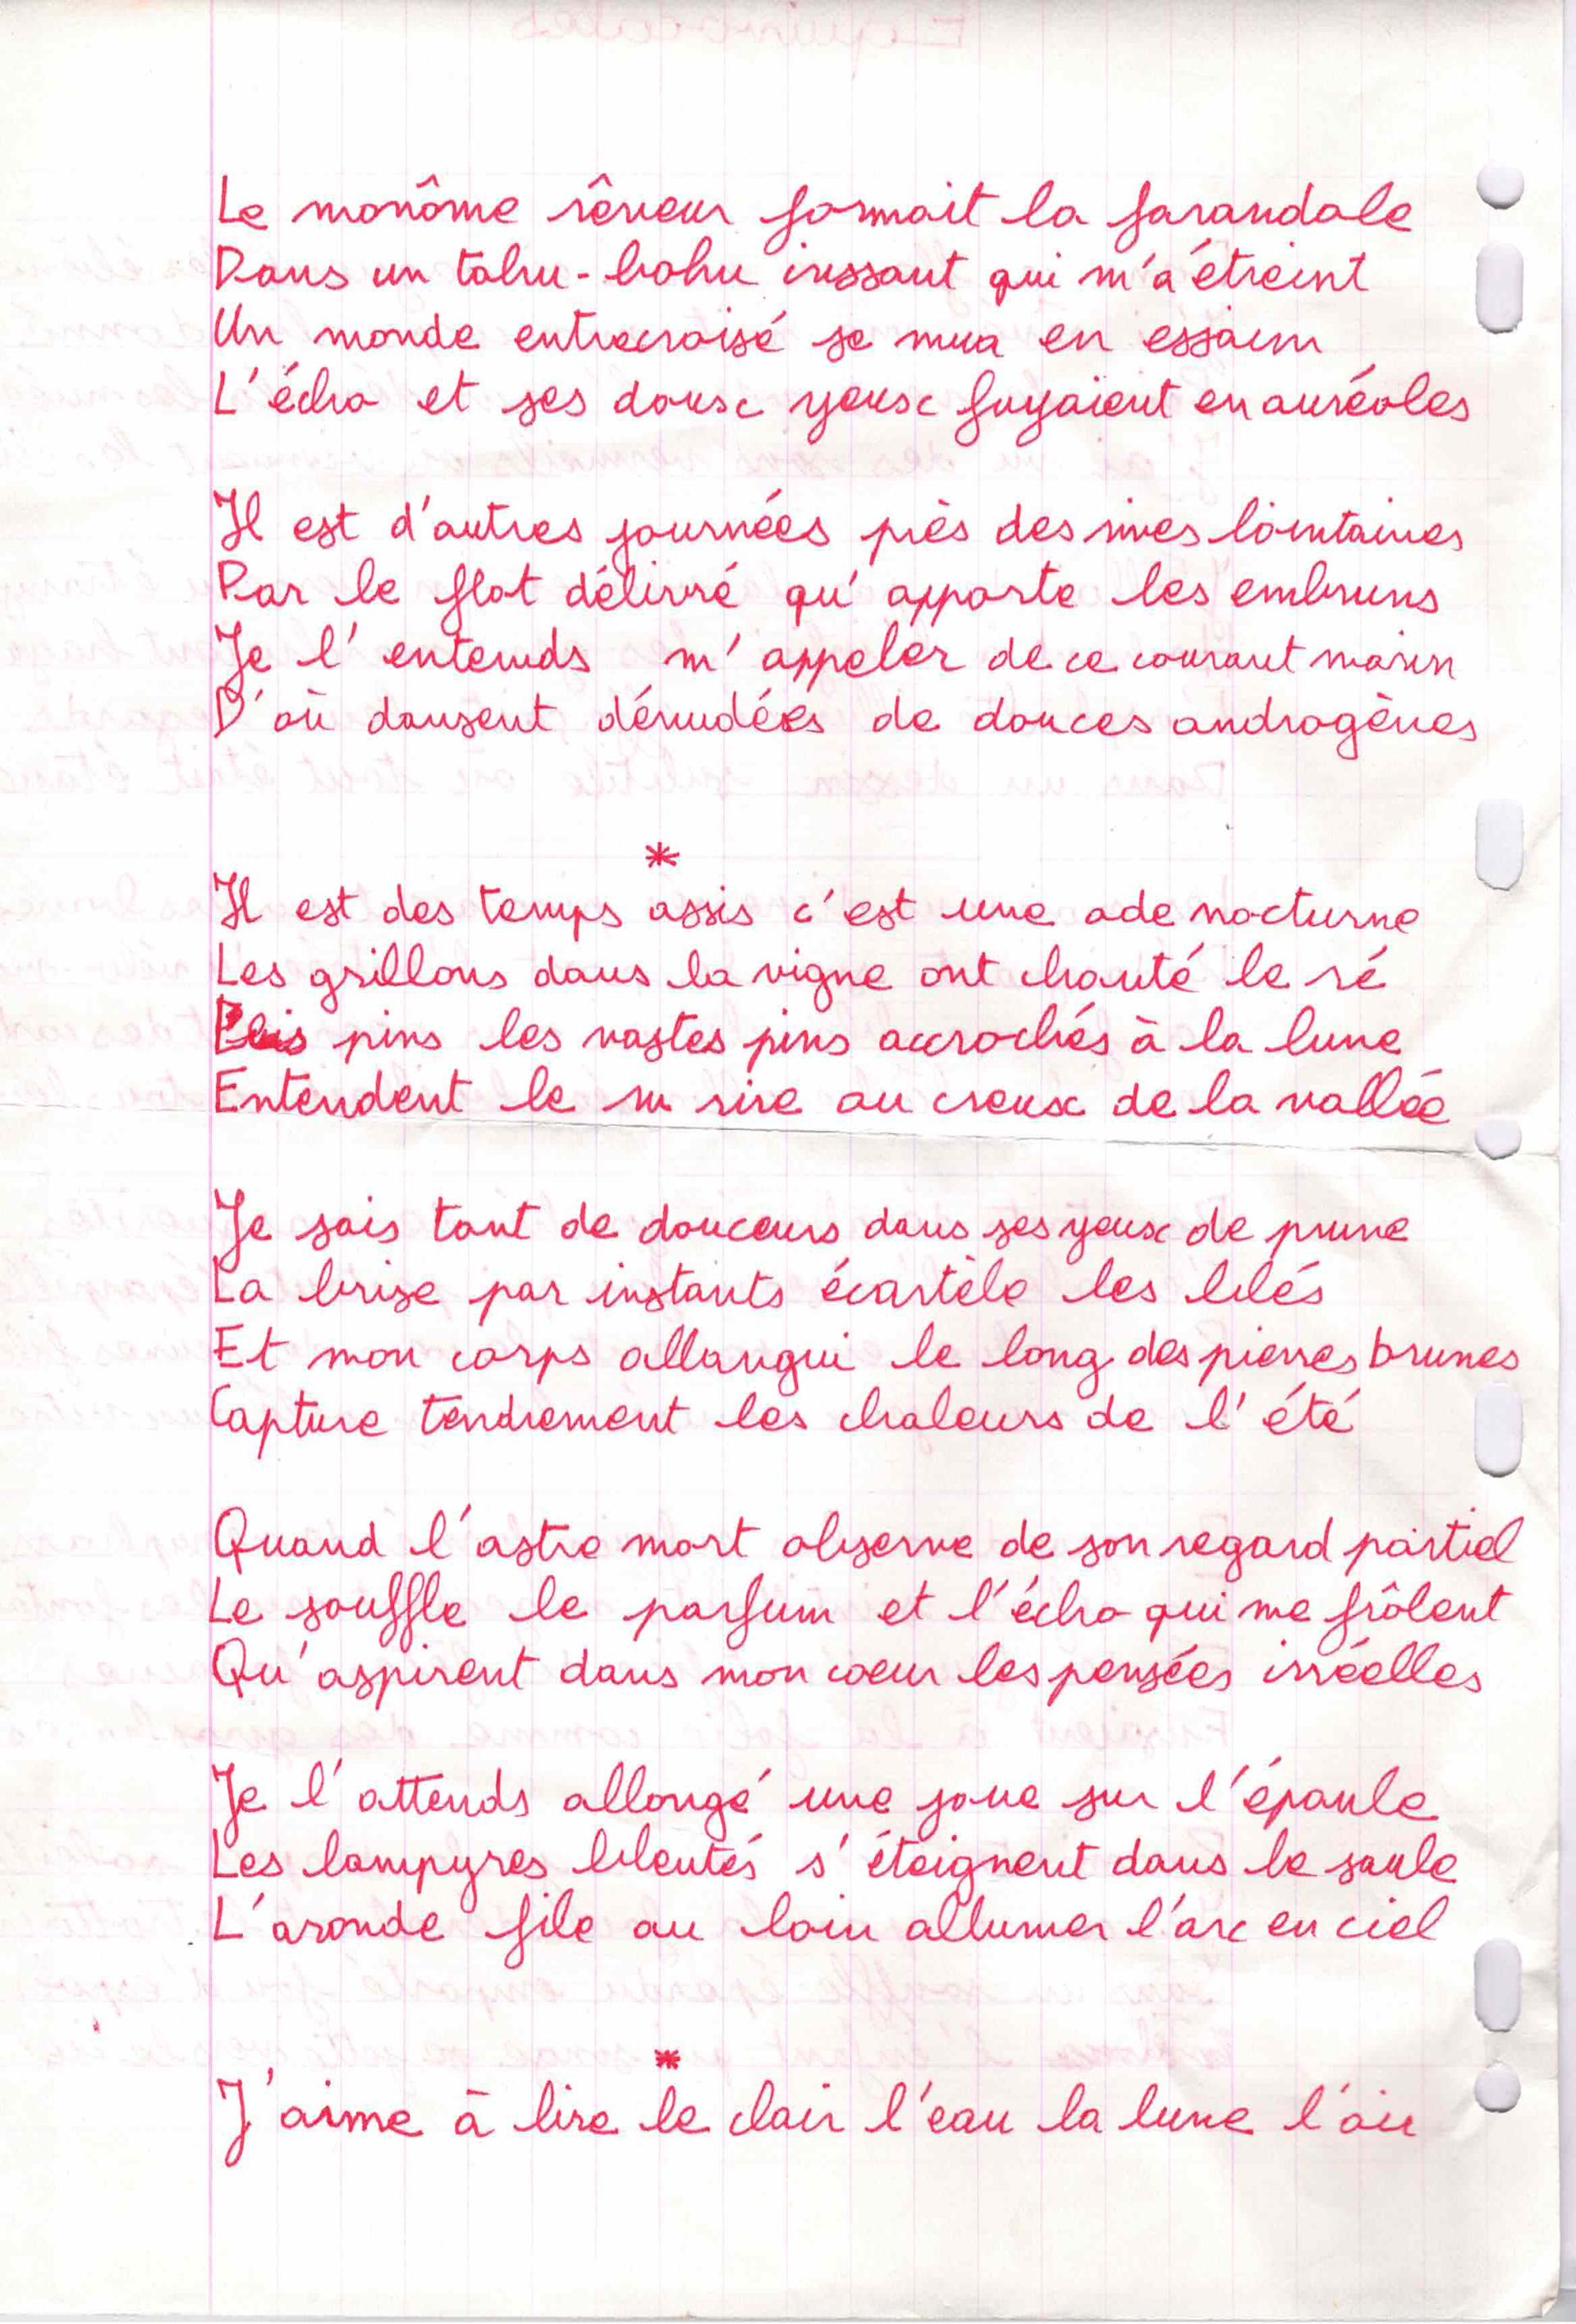 Le monôme rêveur formait la farandole
Dans un tohu-bohu issant qui m'a étreint
Un monde entrecroisé se mua en essaim
L'écho et ses doux yeux fuyaient en auréoles
Il est d'autres journées près des rives lointaines
Par le flot délivré qu'apporte les embruns
Je l'entends m'appeler de ce courant marin
D'où dansent dénudées de douces androgènes
*
Il est des temps assis c'est une ode nocturne
Les grillons dans la vigne ont chanté le ré
Puis pins les vastes pins accrochés à la lune
Entendent le ru rire au creux de la vallée
Je sais tant de douceurs dans ses yeux de prune
La brise par instants écartèle les blés
Et mon corps allangui le long des pierres brunes
Capture tendrement les chaleurs de l'été
Quand l'astre mort observe de son regard partiel
Le souffle le parfum et l'écho qui me frôlent
Qu'aspirent dans mon coeur les pensées irréelles
Je l'attends allongé une joue sur l'épaule
Les lampyres bleutés s'éteignent dans le saule
L'aronde file au loin allumer l'arc en ciel
*
J'aime à lire le clair l'eau la lune l'air